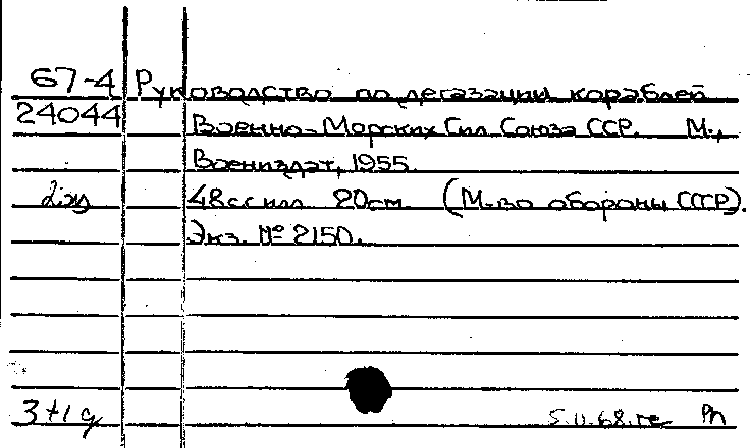 67-4 Руководство по дегазации кораблей
24044 Военно-Морских Сил Союза ССР. М.,
Воениздат, 1955.
48с с илл. 20см. (М-во обороны СССР).
Экз. № 2150.
3+1 д
5.II.68.